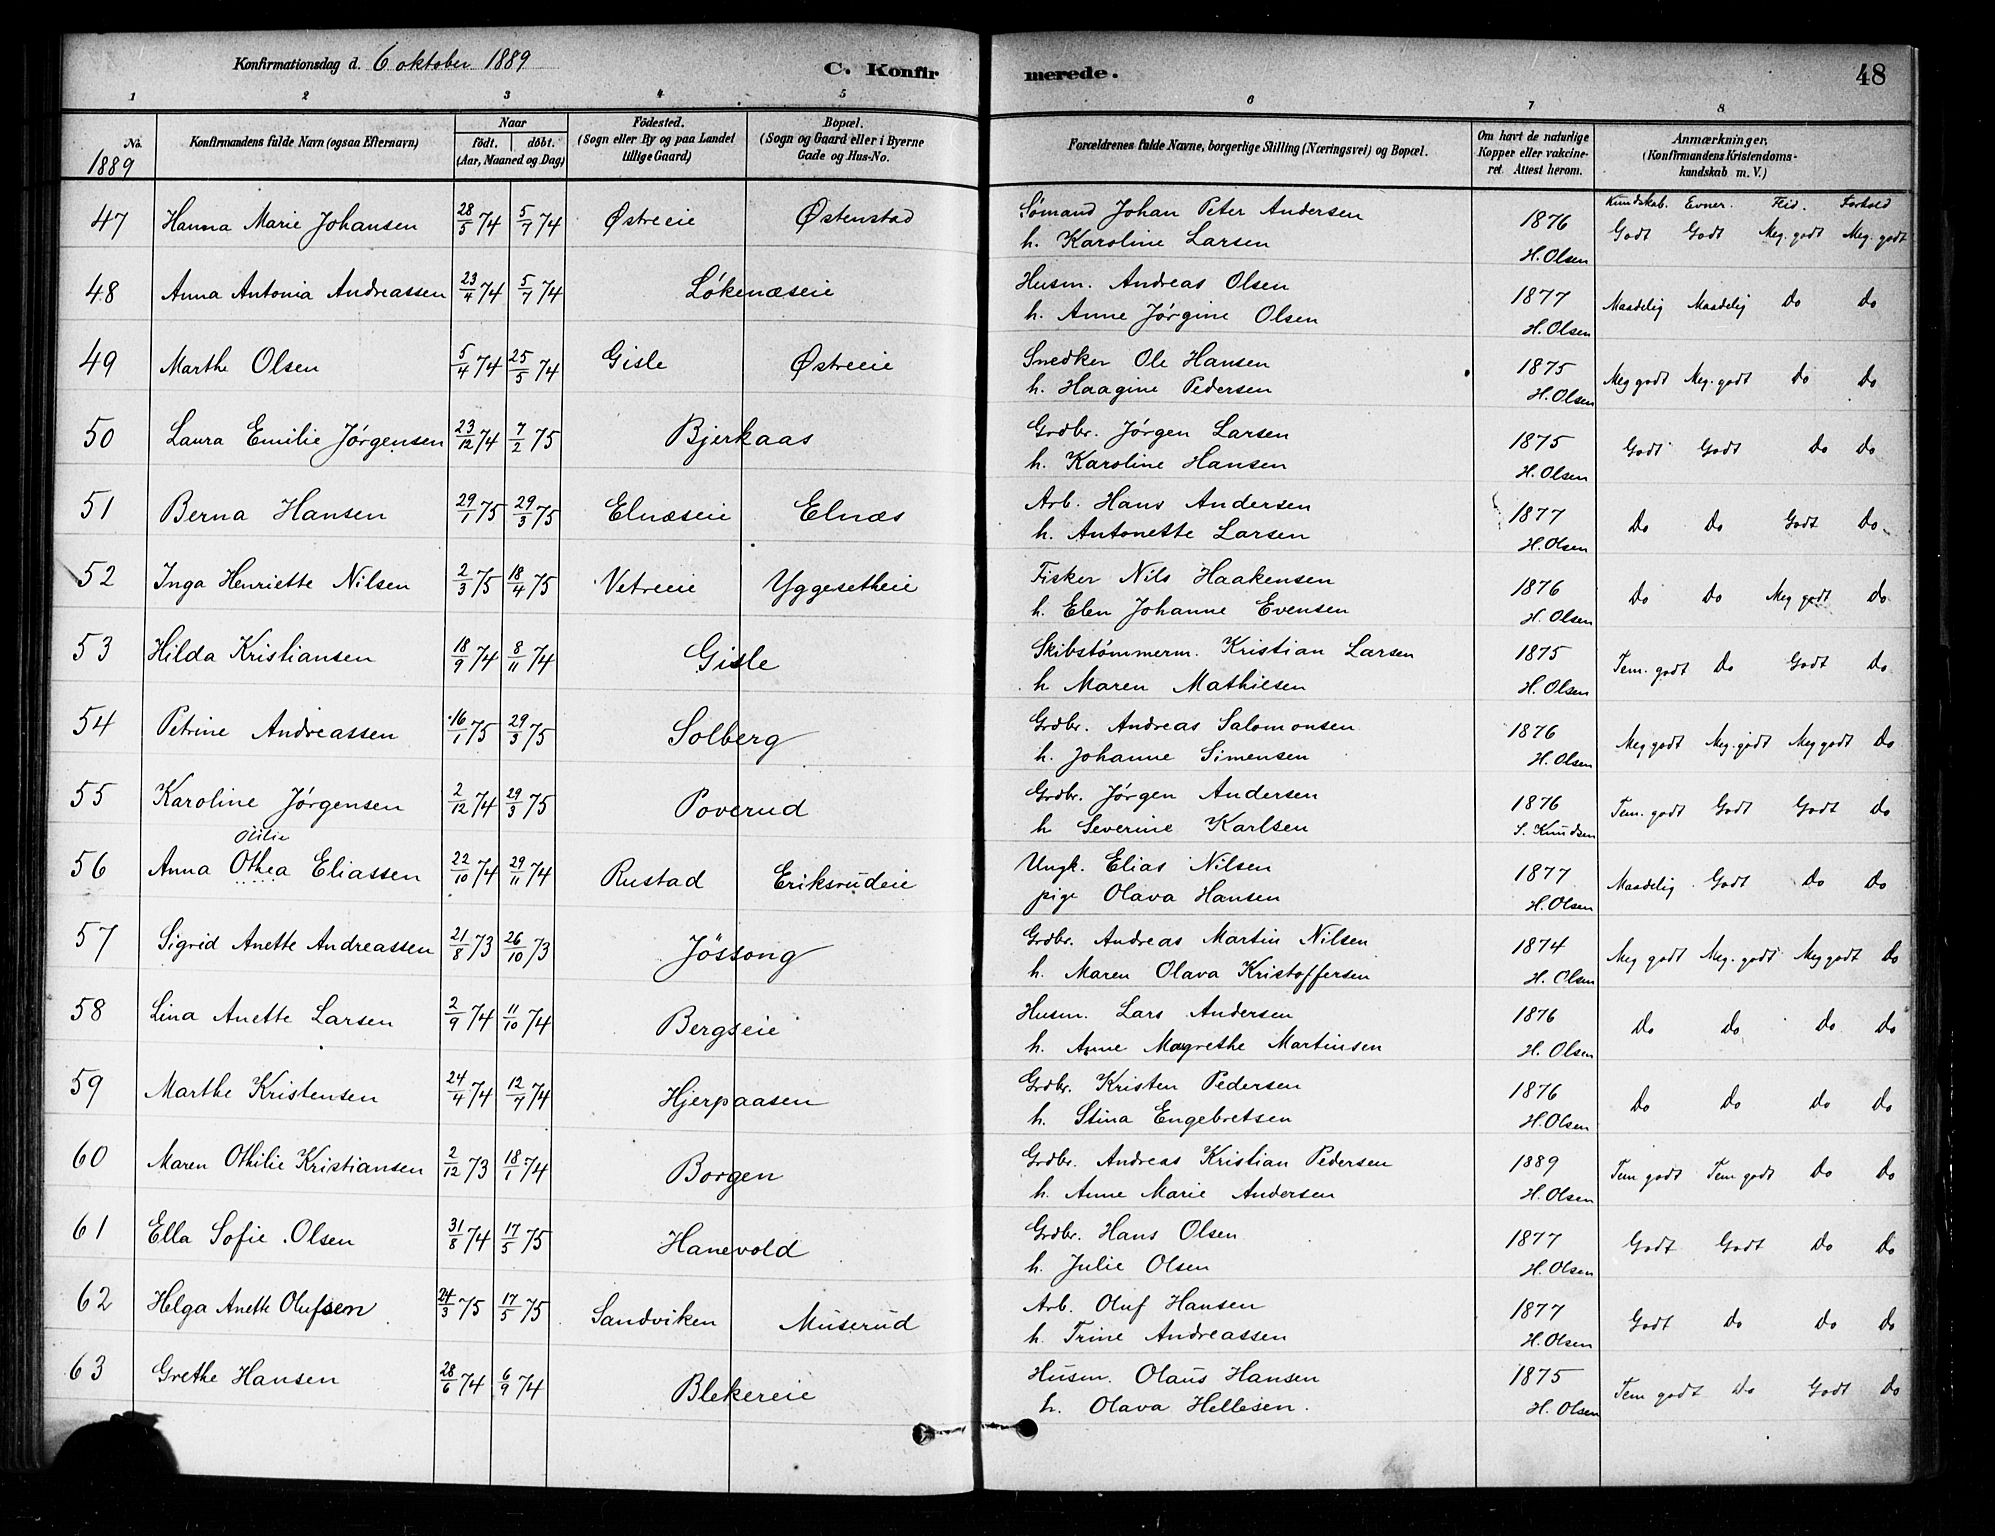 Konfirmationsdag d. 6 oktober 1889
C. Konfirmerede.
48
1 2 3 4 5 6 7 8
No. 1889
Konfirmandens fulde Navn (ogsaa Efternavn)
Naar
födt. döbt.
(Aar, Maaned og Dag)
Födested.
(Sogn eller By og paa Landet
tillige Gaard)
Bopæl.
(Sogn og Gaard eller i Byerne
Gade og Hus-No.
Forældrenes fulde Navne, borgerlige Stilling (Næringsvei) og Bopæl.
Om havt de naturlige
Kopper eller vakcine-
ret. Attest herom.
Anmærkninger.
(Konfirmandens Kristendoms-
kundskab m. V.)
Kundskab. Evner. Flid. Forhold
47 Hanna Marie Johansen 28/5 74 5/7 74 Østreeie Østenstad Sømand Johan Peter Andersen 1876 Godt Godt Meg. godt Meg. godt
h. Karoline Larsen H. Olsen
48 Anna Antonia Andreassen 23/4 74 5/7 74 Løkenæseie Husm. Andreas Olsen 1877 Maadelig Maadelig do do
h. Anne Jørgine Olsen H. Olsen
49 Marthe Olsen 5/4 74 25/5 74 Gisle Østreeie Snedker Ole Hansen 1875 Meg godt Meg. godt do do
h. Haagine Pedersen H. Olsen
50 Laura Emilie Jørgensen 23/12 74 7/2 75 Bjerkaas Grdbr. Jørgen Larsen 1875 Godt Godt do do
h. Karoline Hansen H. Olsen
51 Berna Hansen 29/1 75 29/3 75 Elnæseie Elnæs Arb. Hans Andersen 1877 do do Godt do
h. Antonette Larsen H. Olsen
52 Inga Henriette Nilsen 2/3 75 18/4 75 Vetreeie Yggesetheie Fisker Nils Haakensen 1876 do do Meg godt do
h. Elen Johanne Evensen H. Olsen
53 Hilda Kristiansen 18/9 74 8/11 74 Gisle Skibstømmerm. Kristian Larsen 1875 Tem. godt do Godt do
h. Maren Mathiesen H. Olsen
54 Petrine Andreassen 16/1 75 29/3 75 Solberg Grdbr. Andreas Salomonsen 1876 Meg godt Meg. godt Meg godt do
h. Johanne Simensen H. Olsen
55 Karoline Jørgensen 2/12 74 29/3 75 Poverud Grdbr. Jørgen Andersen 1876 Tem. godt Godt Godt do
h Severine Karlsen S. Knudsen
Otilie
56 Anna Othea Eliassen 22/10 74 29/11 74 Rustad Eriksrudeie Ungk. Elias Nilsen 1877 Maadelig Godt do do
pige Olava Hansen H. Olsen
57 Sigrid Anette Andreassen 21/8 73 26/10 73 Jössong Grdbr. Andreas Martin Nilsen 1874 Meg godt Meg. godt Meg godt do
h. Maren Olava Kristoffersen H. Olsen
58 Lina Anette Larsen 2/9 74 11/10 74 Bergseie Husm. Lars Andersen 1876 do do do do
h. Anne Magrethe Martinsen H. Olsen
59 Marthe Kristensen 24/4 74 12/7 74 Hjerpaasen Grdbr. Kristen Pedersen 1876 do do do do
h. Stina Engebretsen H. Olsen
60 Maren Othilie Kristiansen 2/12 73 18/1 74 Borgen Grdbr. Andreas Kristian Pedersen 1889 Tem godt Tem godt do do
h. Anne Marie Andersen H. Olsen
61 Ella Sofie Olsen 31/8 74 17/5 75 Hanevold Grdbr. Hans Olsen 1877 Godt Godt do do
h. Julie Olsen H. Olsen
62 Helga Anette Olufsen 24/3 75 17/5 75 Sandviken Muserud Arb. Oluf Hansen 1877 Godt do do do
h. Trine Andreassen H. Olsen
63 Grethe Hansen 28/6 74 6/9 74 Blekereie Husm. Olaus Hansen 1875 Tem godt do Godt do
h. Olava Hellesen. H. Olsen